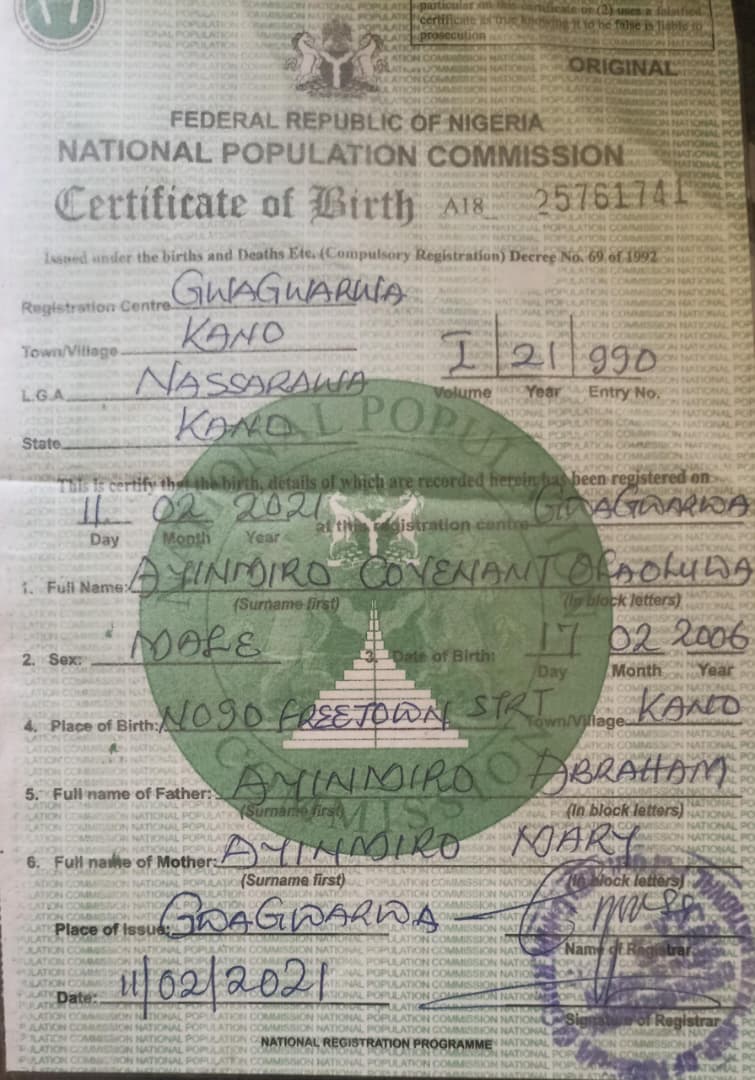 particular on this certificate or (2) uses a falsified
certificate as true knowing it to be false is liable to
prosecution
ORIGINAL
FEDERAL REPUBLIC OF NIGERIA
NATIONAL POPULATION COMMISSION
Certificate of Birth A18 25761741
Issued under the births and Deaths Etc. (Compulsory Registration) Decree No. 69 of 1992
Registration Centre GWAGWARWA
Town/Village KANO
I 21 990
Volume Year Entry No.
L.G.A NASSARAWA
State KANO
This is certify that the birth, details of which are recorded herein has been registered on
11 02 2021 at this registration centre GWAGWARWA
Day Month Year
1. Full Name: AYINMIRO COVENANT OFAOLUWA
(Surname first) (In block letters)
2. Sex: MALE 3. Date of Birth: 17 02 2006
Day Month Year
4. Place of Birth: NO90 FREETOWN STRT Town/Village KANO
5. Full name of Father: AYINMIRO ABRAHAM
(Surname first) (In block letters)
6. Full name of Mother: AYINMIRO MARY
(Surname first) (In block letters)
Place of Issue: GWAGWARWA
Name of Registrar
Date: 11/02/2021
Signature of Registrar
NATIONAL REGISTRATION PROGRAMME